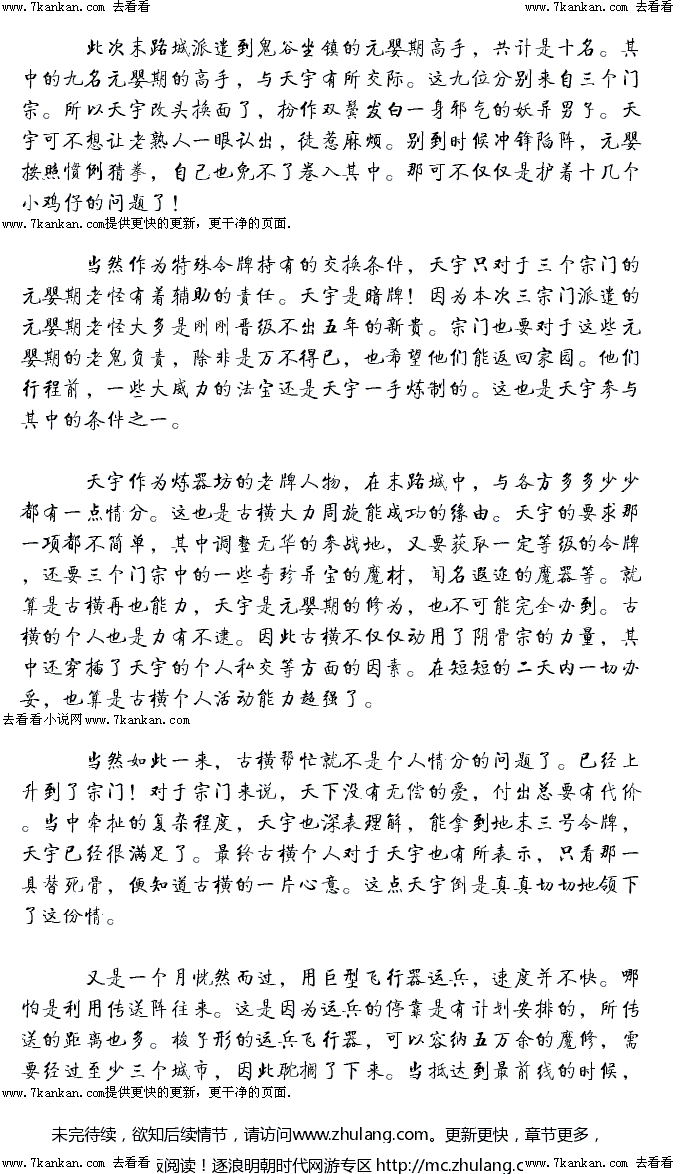 www.7kankan.com 去看看 www.7kankan.com 去看看
此次末路城派遣到鬼谷坐镇的元婴期高手，共计是十名。其
中的九名元婴期的高手，与天宇有所交际。这九位分别来自三个门
宗。所以天宇改头换面了，扮作双鬓发白一身邪气的妖异男子。天
宇可不想让老熟人一眼认出，徒惹麻烦。别到时候冲锋陷阵，元婴
按照惯例猜拳，自己也免不了卷入其中。那可不仅仅是护着十几个
小鸡仔的问题了！
www.7kankan.com提供更快的更新，更干净的页面.
当然作为特殊令牌持有的交换条件，天宇只对于三个宗门的
元婴期老怪有着辅助的责任。天宇是暗牌！因为本次三宗门派遣的
元婴期老怪大多是刚刚晋级不出五年的新贵。宗门也要对于这些元
婴期的老鬼负责，除非是万不得已，也希望他们能返回家园。他们
行程前，一些大威力的法宝还是天宇一手炼制的。这也是天宇参与
其中的条件之一。
天宇作为炼器坊的老牌人物，在末路城中，与各方多多少少
都有一点情分。这也是古横大力周旋能成功的缘由。天宇的要求那
一项都不简单，其中调整无华的参战地，又要获取一定等级的令牌
，还要三个门宗中的一些奇珍异宝的魔材，闻名遐迩的魔器等。就
算是古横再也能力，天宇是元婴期的修为，也不可能完全办到。古
横的个人也是力有不逮。因此古横不仅仅动用了阴骨宗的力量，其
中还穿插了天宇的个人私交等方面的因素。在短短的二天内一切办
妥，也算是古横个人活动能力超强了。
去看看小说网www.7kankan.com
当然如此一来，古横帮忙就不是个人情分的问题了。已经上
升到了宗门！对于宗门来说，天下没有无偿的爱，付出总要有代价
。当中牵扯的复杂程度，天宇也深表理解，能拿到地末三号令牌，
天宇已经很满足了。最终古横个人对于天宇也有所表示，只看那一
具替死骨，便知道古横的一片心意。这点天宇倒是真真切切地领下
了这份情。
又是一个月恍然而过，用巨型飞行器运兵，速度并不快。哪
怕是利用传送阵往来。这是因为运兵的停靠是有计划安排的，所传
送的距离也多。梭子形的运兵飞行器，可以容纳五万余的魔修，需
要经过至少三个城市，因此耽搁了下来。当抵达到最前线的时候，
www.7kankan.com提供更快的更新，更干净的页面.
未完待续，欲知后续情节，请访问www.zhulang.com。更新更快，章节更多，
www.7kankan.com 去看看 阅读！逐浪明朝时代网游专区 http://mc.zhulang.co www.7kankan.com 去看看